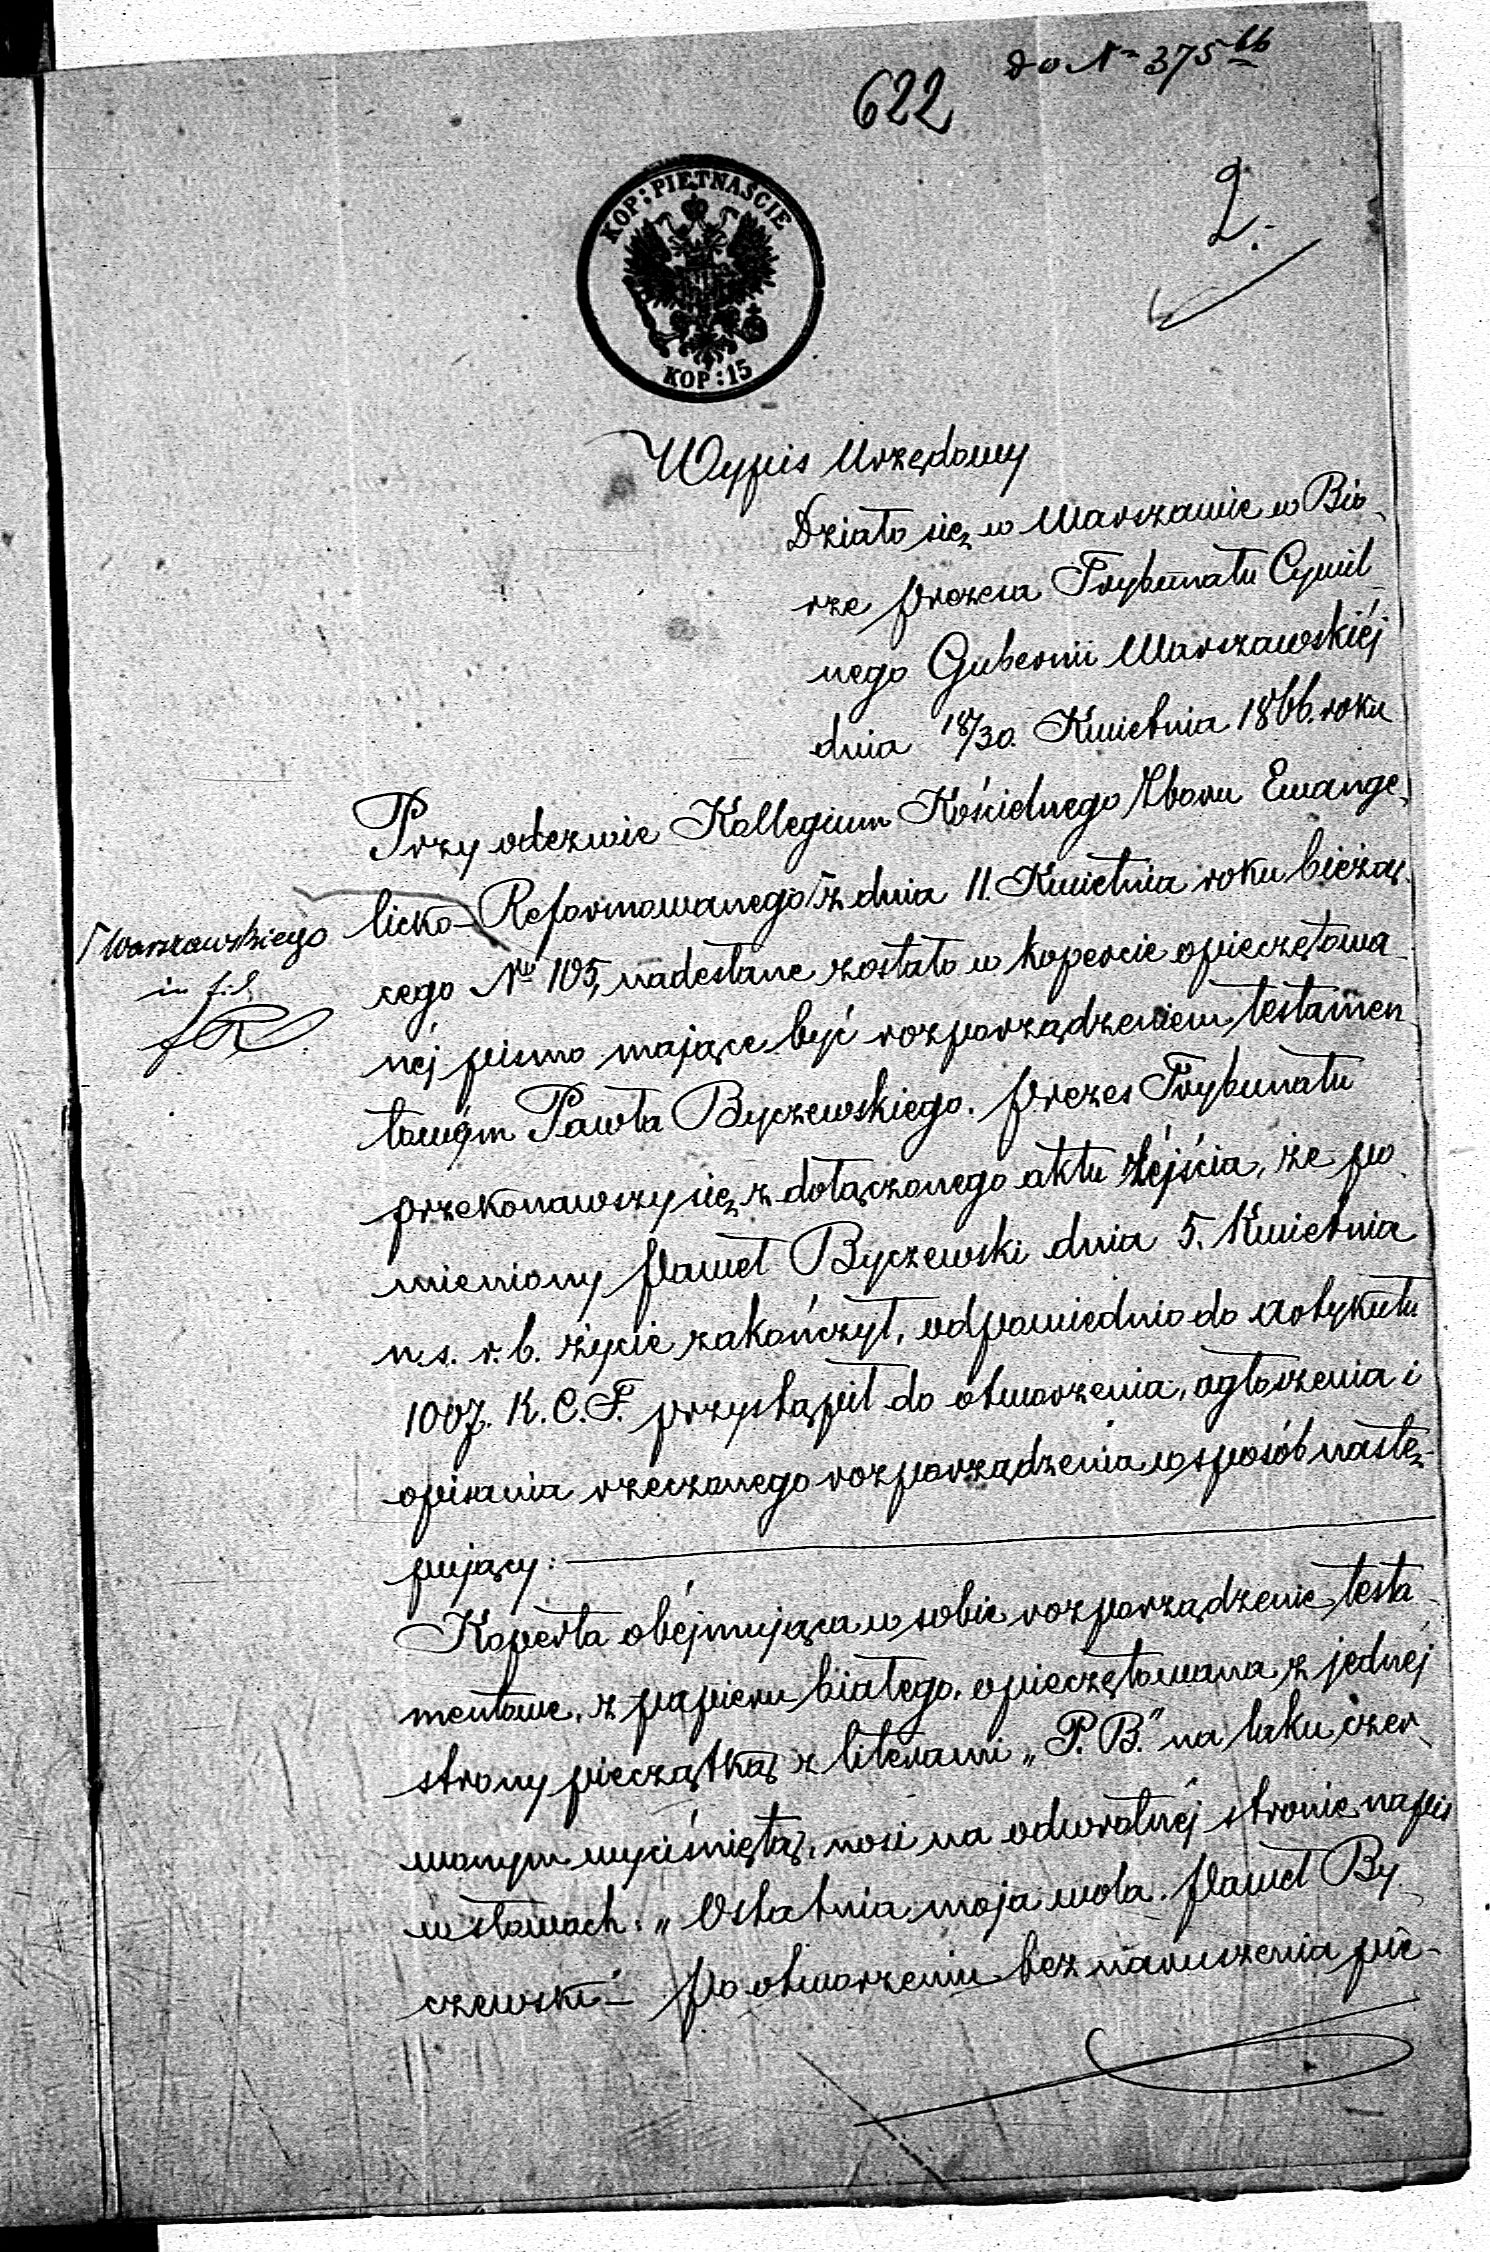 do Nº 375 66
622
2.
KOP: PIĘTNAŚCIE
KOP: 15
Wypis Urzędowy
Działo się w Warszawie w Bió-
rze Prezesa Trybunału Cywil-
nego Gubernii Warszawskiéj
dnia 18/30. Kwietnia 1866. roku
Przy odezwie Kollegium Kościelnego Zboru Ewange-
licko-Reformowanego z dnia 11. Kwietnia roku bieżą-
Warszawskiego
cego Nr 105, nadesłane zostało w kopercie opieczętowa-
néj pismo mające być rozporządzeniem testamen-
towém Pawła Byczewskiego. Prezes Trybunału
przekonawszy się z dołączonego aktu zéjścia, że po-
mieniony Paweł Byczewski dnia 5. Kwietnia
n.s. r.b. życie zakończył, odpowiednio do artykułu
1007. K.C.F. przystąpił do otworzenia, ogłoszenia i
opisania rzeczonego rozporządzenia w sposób nastę-
pujący:
Koperta obéjmująca w sobie rozporządzenie testa-
mentowe, z papieru białego, opieczętowana z jednéj
strony pieczątką z literami „P.B." na laku czer-
wonym wyciśniętą, nosi na odwrotnéj stronie napis
w słowach: „Ostatnia moja wola. Paweł By-
czewski" – Po otworzeniu bez naruszenia pie-